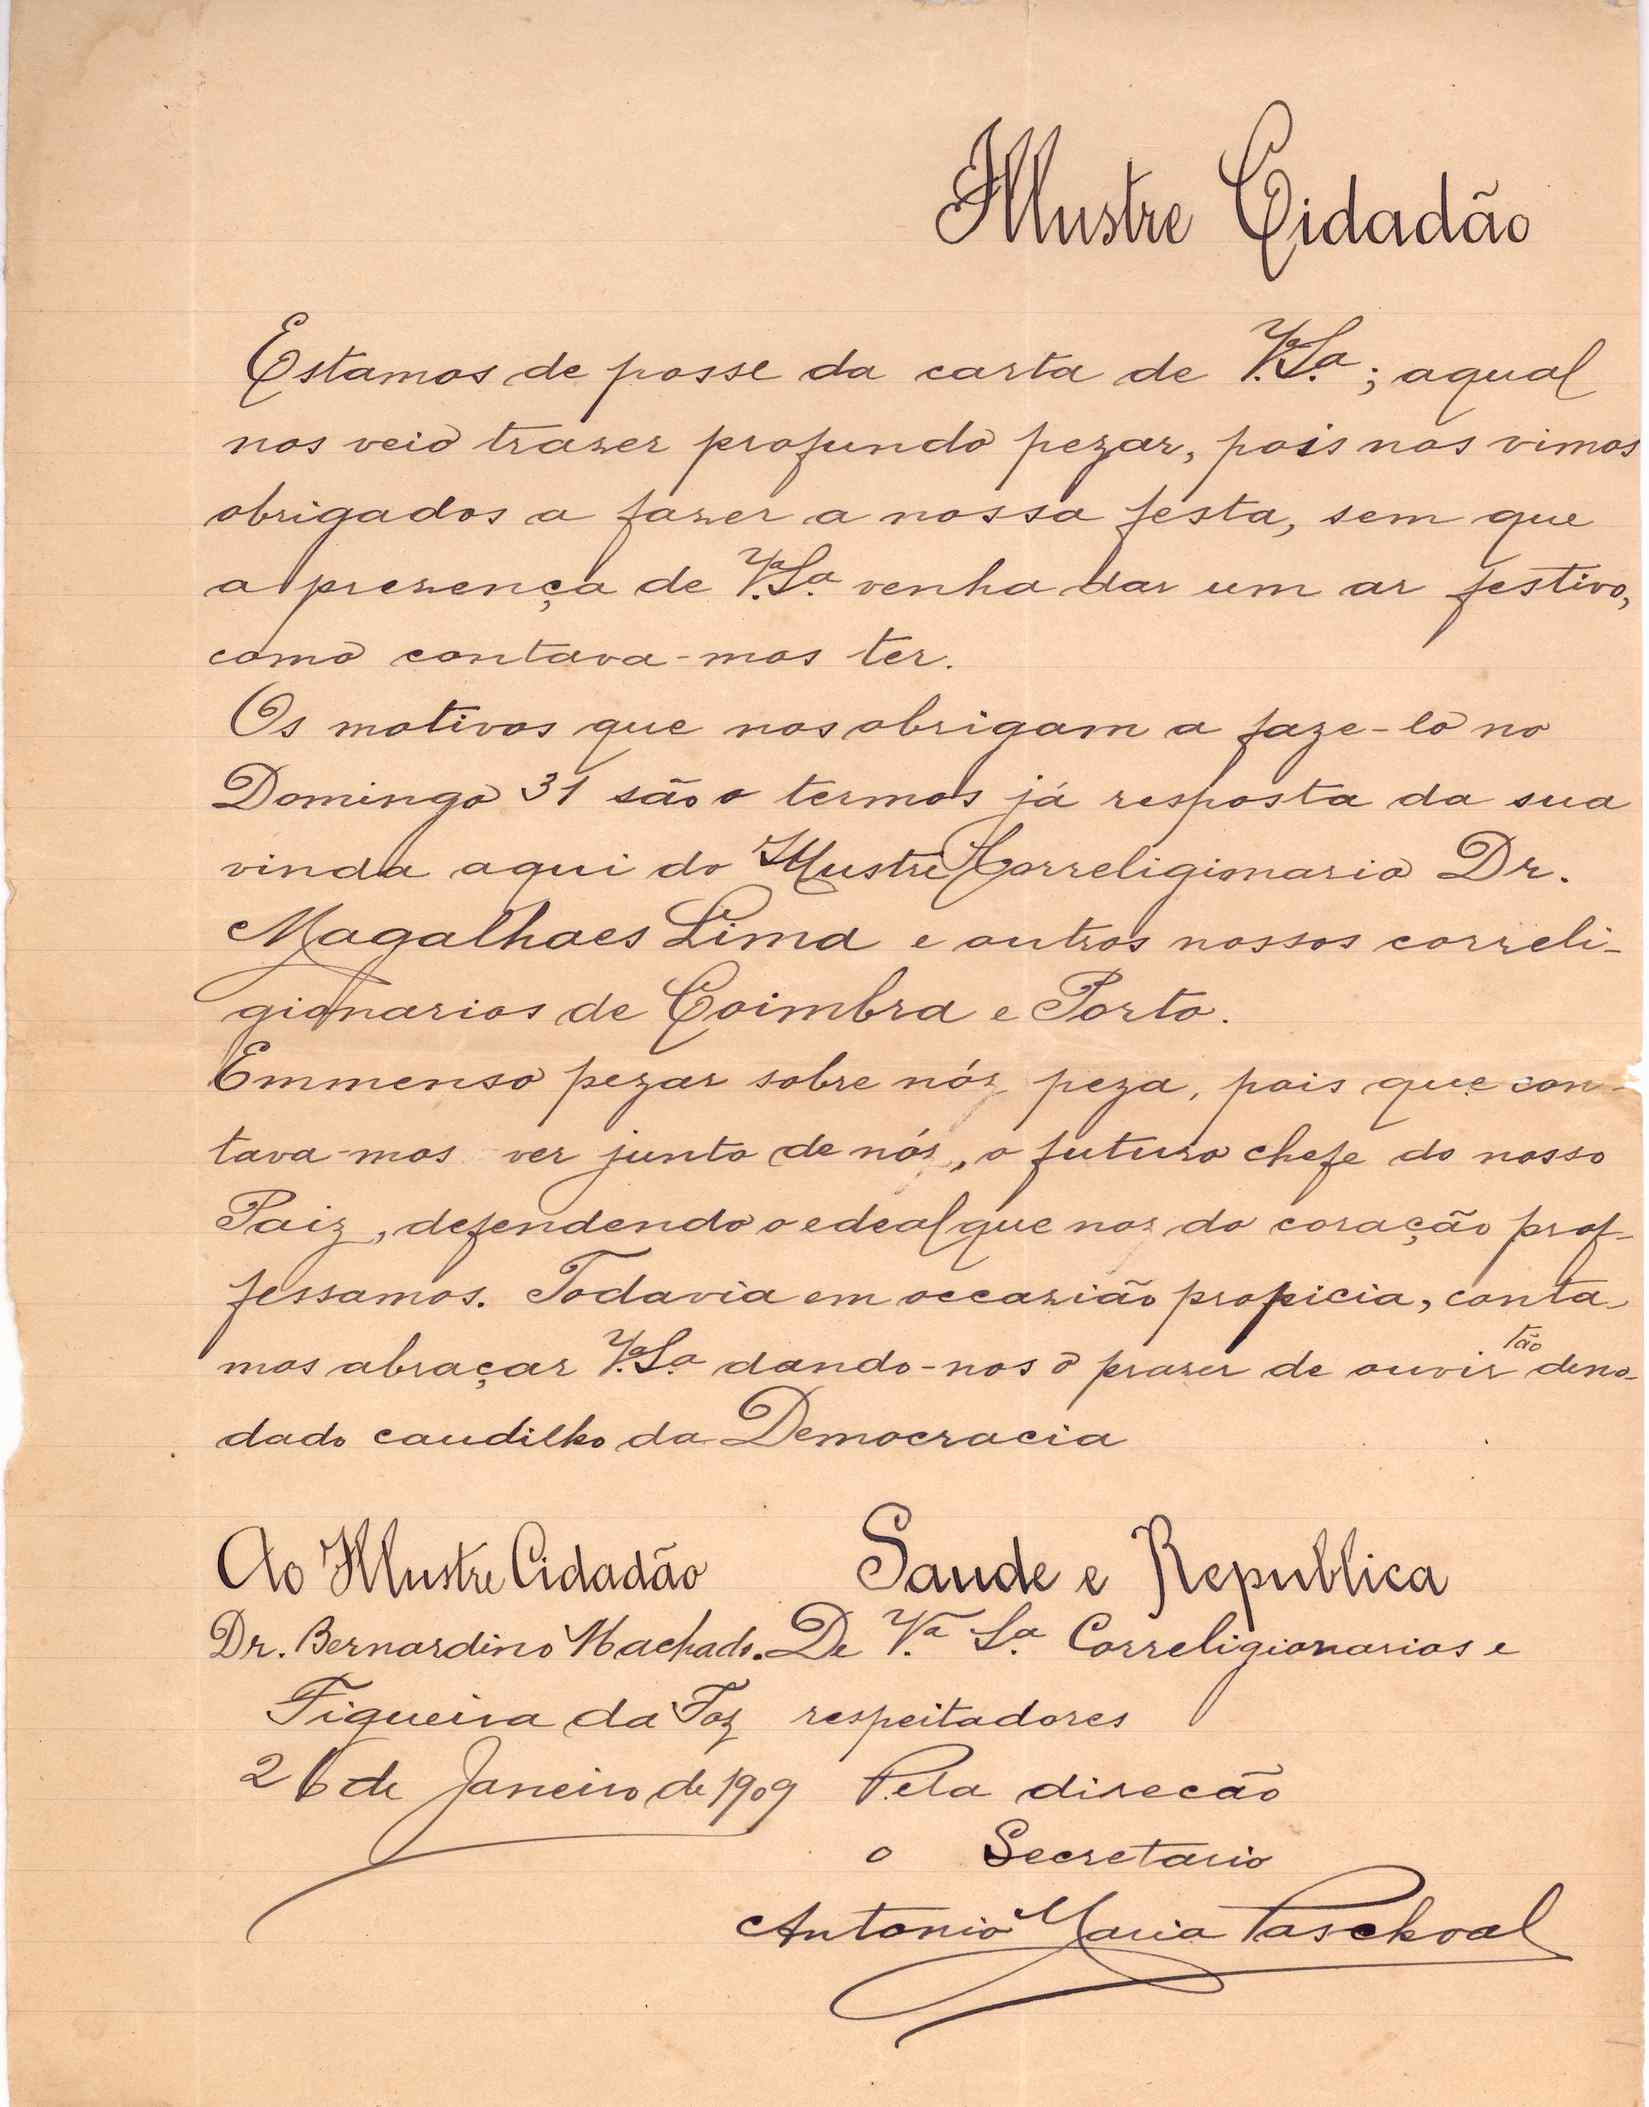 Illustre Cidadão
Estamos de posse da carta de V.ª S.ª; aqual
nos veio trazer profundo pezar, pois nos vimos
obrigados a fazer a nossa festa, sem que
a prezença de V.ª S.ª venha dar um ar festivo,
como contava-mos ter.
Os motivos que nos obrigam a faze-lo no
Domingo 31 são o termos já resposta da sua
vinda aqui do Illustre Correligionario Dr.
Magalhaes Lima e outros nossos correli-
gionarios de Coimbra e Porto.
Emmenso pezar sobre nóz peza, pois que con-
tava-mos ver junto de nóz, o futuro chefe do nosso
Paiz, defendendo o edeal que noz do coração prof-
fessamos. Todavia em occazião propicia, conta-
mos abraçar V.ª S.ª dando-nos o prazer de ouvir tão deno-
dado caudilho da Democracia
Ao Illustre Cidadão Saude e Republica
Dr. Bernardino Machado. De V.ª S.ª Correligionarios e
Figueira da Foz respeitadores
26 de Janeiro de 1909 Pela direcão
o Secretario
Antonio Maria Paschoal